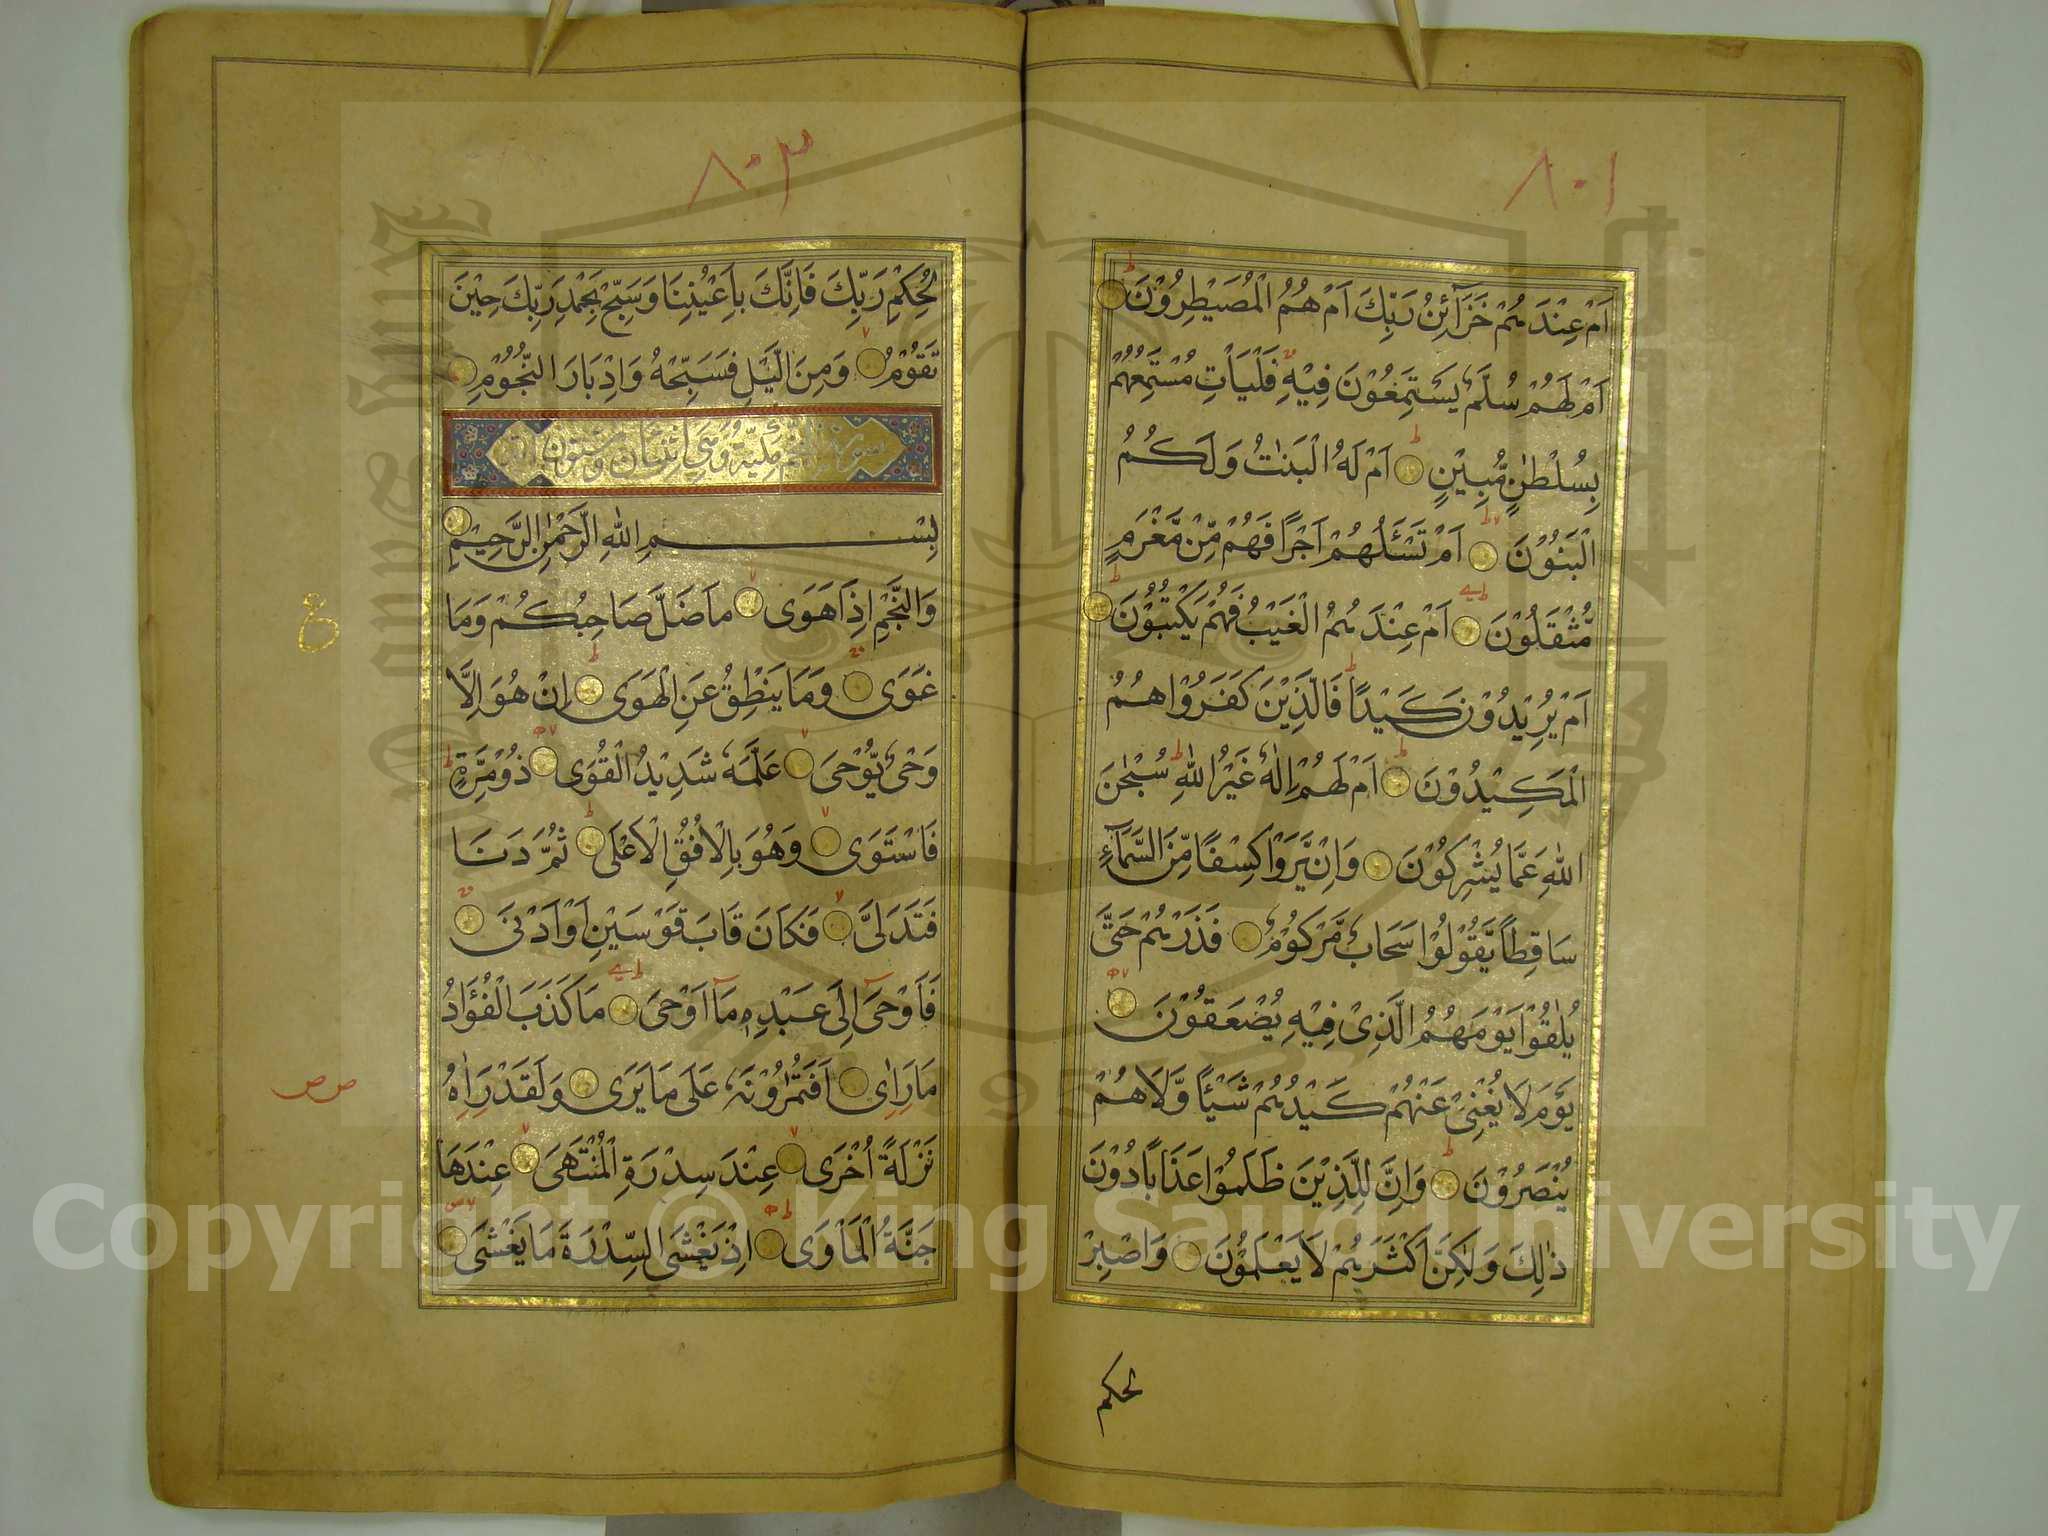 ٨٠١
اَمْ عِنْدَهُمْ خَزَآئِنُ رَبِّكَ اَمْ هُمُ الْمُصَيْطِرُوْنَ
اَمْ لَهُمْ سُلَّمٌ يَسْتَمِعُوْنَ فِيْهِ فَلْيَاْتِ مُسْتَمِعُهُمْ
بِسُلْطٰنٍ مُّبِيْنٍ اَمْ لَهُ الْبَنٰتُ وَلَكُمُ
الْبَنُوْنَ اَمْ تَسْئَلُهُمْ اَجْرًا فَهُمْ مِّنْ مَّغْرَمٍ
مُّثْقَلُوْنَ اَمْ عِنْدَهُمُ الْغَيْبُ فَهُمْ يَكْتُبُوْنَ
اَمْ يُرِيْدُوْنَ كَيْدًا فَالَّذِيْنَ كَفَرُوْا هُمُ
الْمَكِيْدُوْنَ اَمْ لَهُمْ اِلٰهٌ غَيْرُ اللّٰهِ سُبْحٰنَ
اللّٰهِ عَمَّا يُشْرِكُوْنَ وَاِنْ يَّرَوْا كِسْفًا مِّنَ السَّمَآءِ
سَاقِطًا يَّقُوْلُوْا سَحَابٌ مَّرْكُوْمٌ فَذَرْهُمْ حَتّٰى
يُلٰقُوْا يَوْمَهُمُ الَّذِىْ فِيْهِ يُصْعَقُوْنَ
يَوْمَ لَا يُغْنِىْ عَنْهُمْ كَيْدُهُمْ شَيْئًا وَّلَا هُمْ
يُنْصَرُوْنَ وَاِنَّ لِلَّذِيْنَ ظَلَمُوْا عَذَابًا دُوْنَ
ذٰلِكَ وَلٰكِنَّ اَكْثَرَهُمْ لَا يَعْلَمُوْنَ وَاصْبِرْ
لحكم
٨٠٣
لِحُكْمِ رَبِّكَ فَاِنَّكَ بِاَعْيُنِنَا وَسَبِّحْ بِحَمْدِ رَبِّكَ حِيْنَ
تَقُوْمُ وَمِنَ الَّيْلِ فَسَبِّحْهُ وَاِدْبَارَ النُّجُوْمِ
النجم مكية وهي اثنتان وستون
بِسْمِ اللّٰهِ الرَّحْمٰنِ الرَّحِيْمِ
وَالنَّجْمِ اِذَا هَوَى مَا ضَلَّ صَاحِبُكُمْ وَمَا
غَوَى وَمَا يَنْطِقُ عَنِ الْهَوَى اِنْ هُوَ اِلَّا
وَحْىٌ يُّوْحَى عَلَّمَهٗ شَدِيْدُ الْقُوَى ذُوْ مِرَّةٍ
فَاسْتَوَى وَهُوَ بِالْاُفُقِ الْاَعْلَى ثُمَّ دَنَا
فَتَدَلَّى فَكَانَ قَابَ قَوْسَيْنِ اَوْ اَدْنَى
فَاَوْحَى اِلَى عَبْدِهٖ مَا اَوْحَى مَا كَذَبَ الْفُؤَادُ
مَا رَاٰى اَفَتُمٰرُوْنَهٗ عَلَى مَا يَرَى وَلَقَدْ رَاٰهُ
نَزْلَةً اُخْرَى عِنْدَ سِدْرَةِ الْمُنْتَهَى عِنْدَهَا
جَنَّةُ الْمَاْوَى اِذْ يَغْشَى السِّدْرَةَ مَا يَغْشَى
ع
Copyright © King Saud University